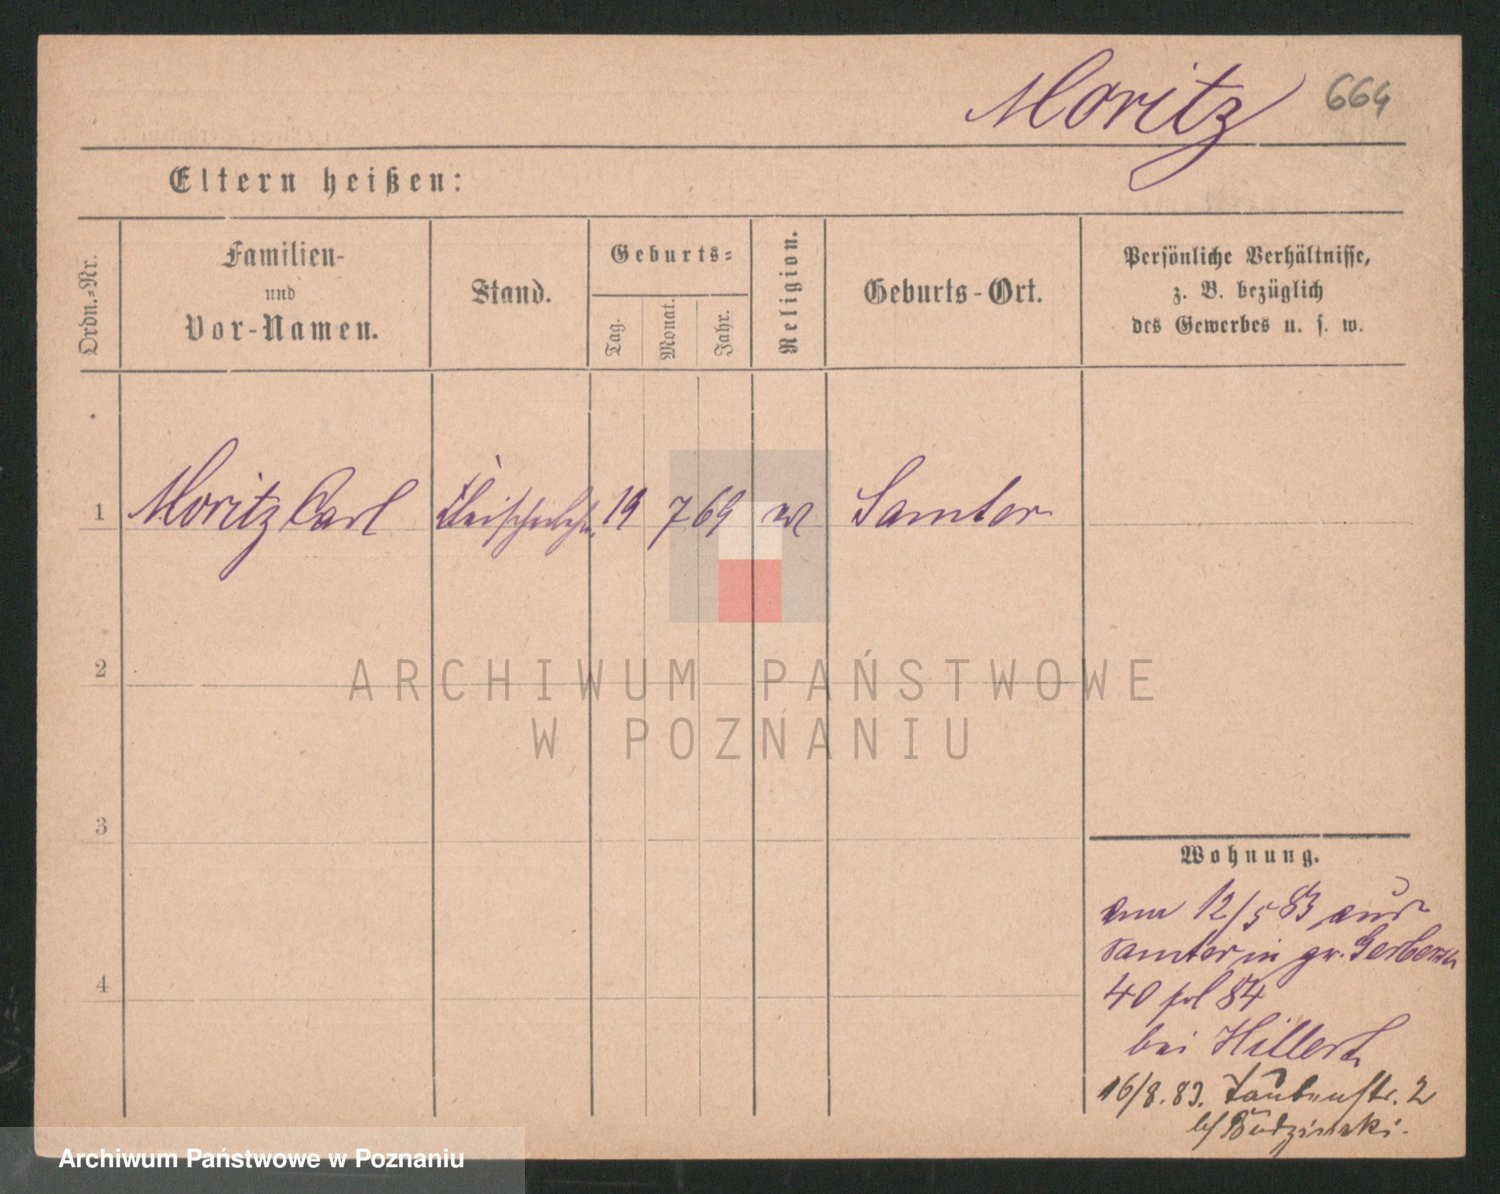 Moritz 664
Eltern heißen:
Ordn.-Nr.
Familien-
und
Vor-Namen.
Stand.
Geburts-
Tag.
Monat.
Jahr.
Religion.
Geburts-Ort.
Persönliche Verhältnisse,
z. B. bezüglich
des Gewerbes u. s. w.
1 Moritz Carl 19 7 69 Samter
2
ARCHIWUM PAŃSTWOWE
W POZNANIU
3
Wohnung.
am 12/5 83 aus
Samter in gr. Gerberstr
4
40 pol 84
bei Hillert
16/8. 83. Taubenstr. 2
b/ Budzinski.
Archiwum Państwowe w Poznaniu